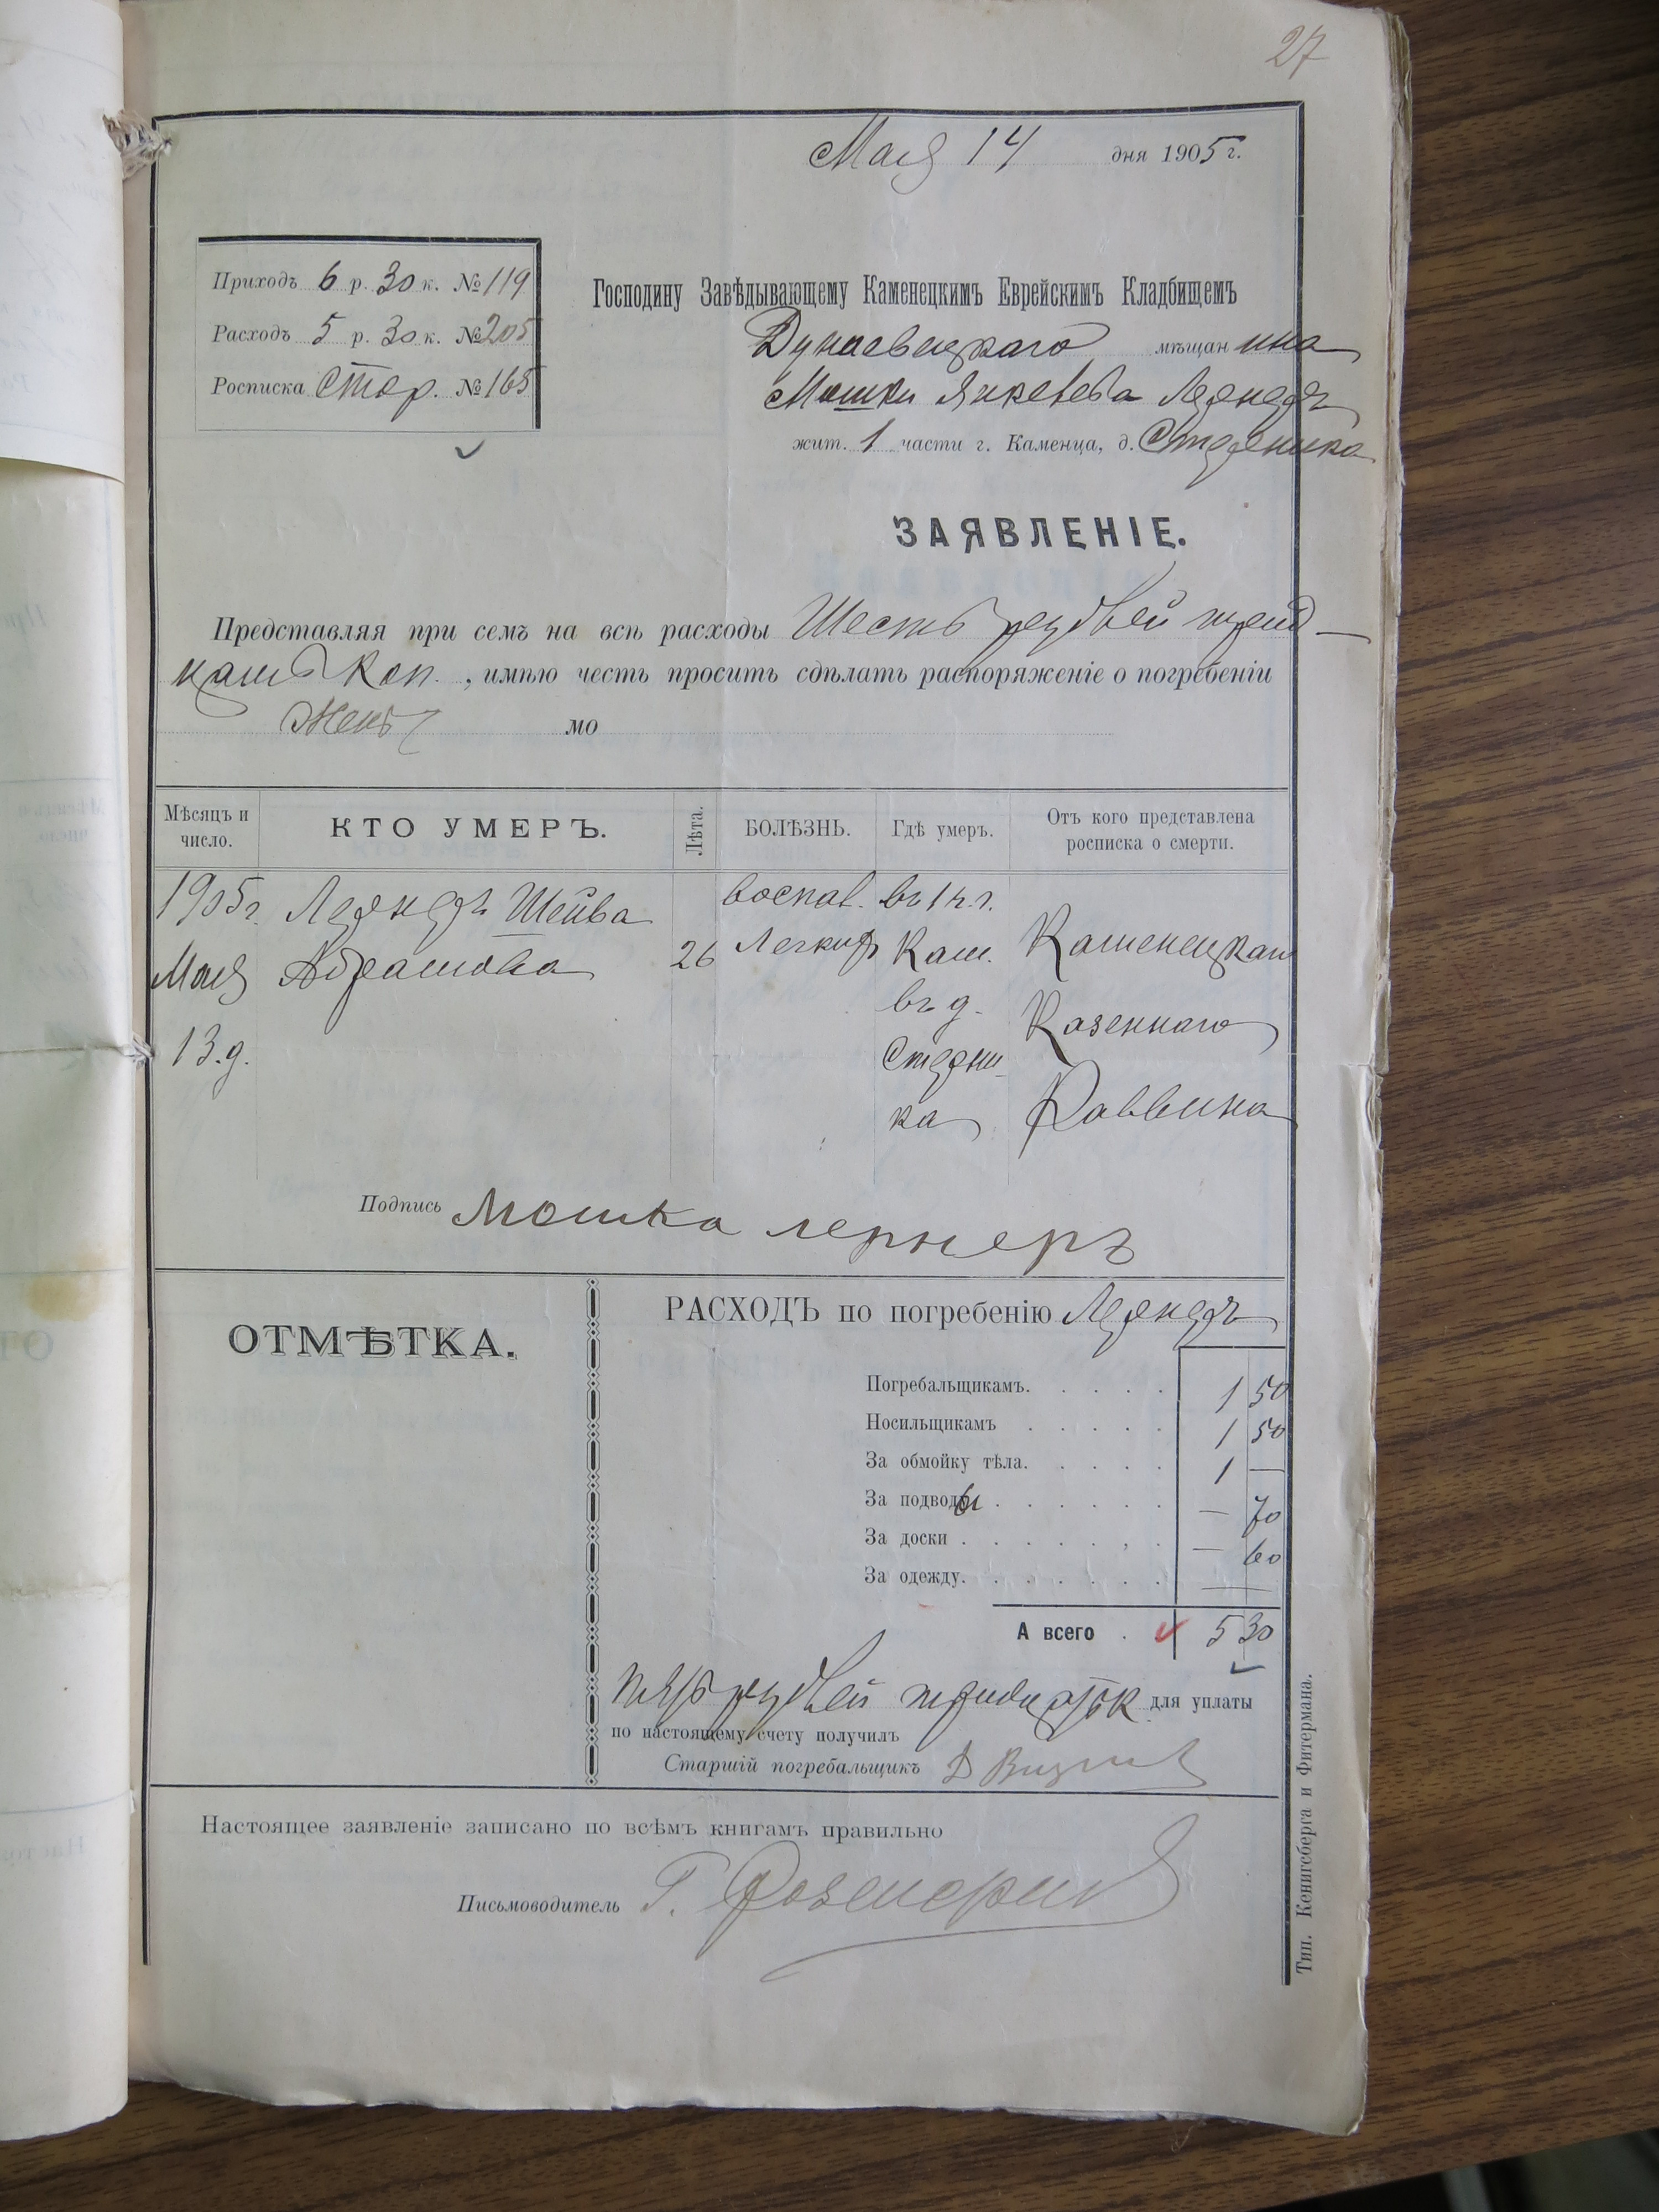 27
Мая 14 дня 1905 г.
Приходъ 6 р. 30 к. № 119
Расходъ 5 р. 30 к. № 205
Росписка стор. № 165
Господину Завѣдывающему Каменецкимъ Еврейскимъ Кладбищемъ
Дунаевецкаго мѣщанина
Мошки Янкелева Лернеръ
жит. 1 части г. Каменца, д. Стерника
ЗАЯВЛЕНІЕ.
Представляя при семъ на всѣ расходы Шесть рублей трид-
цать коп., имѣю честь просить сдѣлать распоряженіе о погребеніи
Жены мо
Мѣсяцъ и число.
КТО УМЕРЪ.
Лѣта.
БОЛѢЗНЬ.
Гдѣ умеръ.
Отъ кого представлена
росписка о смерти.
1905 г. Лернеръ Шейва воспал. въ 1 ч. г.
Мая Абрамова 26 Легкихъ Кам. Каменецкаго
13 д. въ д. Казеннаго
Стерни-
ка Раввина
Подпись Мошка лернеръ
ОТМѢТКА.
РАСХОДЪ по погребенію Лернеръ
Погребальщикамъ. 1 50
Носильщикамъ 1 50
За обмойку тѣла. 1 —
За подводы — 70
За доски — 60
За одежду. —
А всего 5 30
пять рублей тридцать к для уплаты
по настоящему счету получилъ
Старшій погребальщикъ Д
Настоящее заявленіе записано по всѣмъ книгамъ правильно
Письмоводитель Г.
Тип. Кенигсберга и Фитермана.